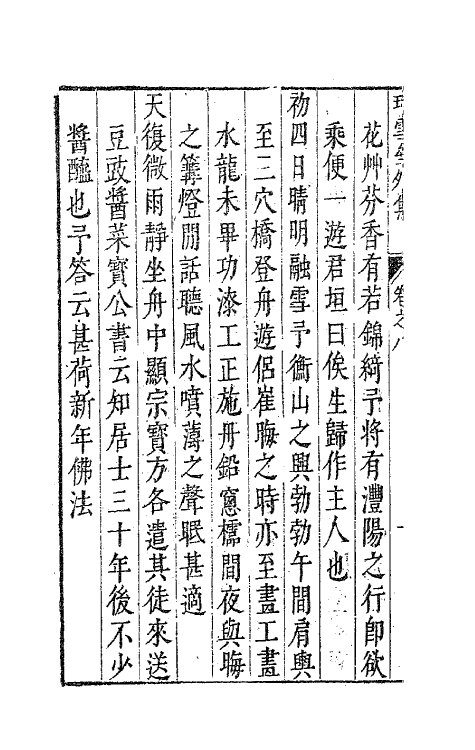 珂雪
集
卷之八
花艸芬香有若錦綺予將有澧陽之行卽欲
乘便一遊君垣曰俟生歸作主人也
初四日晴明融雪予衡山之興勃勃午間肩輿
至三穴橋登舟遊侶崔晦之時亦至畫工畫
水龍未畢功漆工正施丹鉛窻檽間夜與晦
之篝燈閒話聽風水噴薄之聲眠甚適
天復微雨靜坐舟中顯宗寶方各遣其徒來送
豆豉醬菜寶公書云知居士三十年後不少
醬醯也予答云甚荷新年佛法